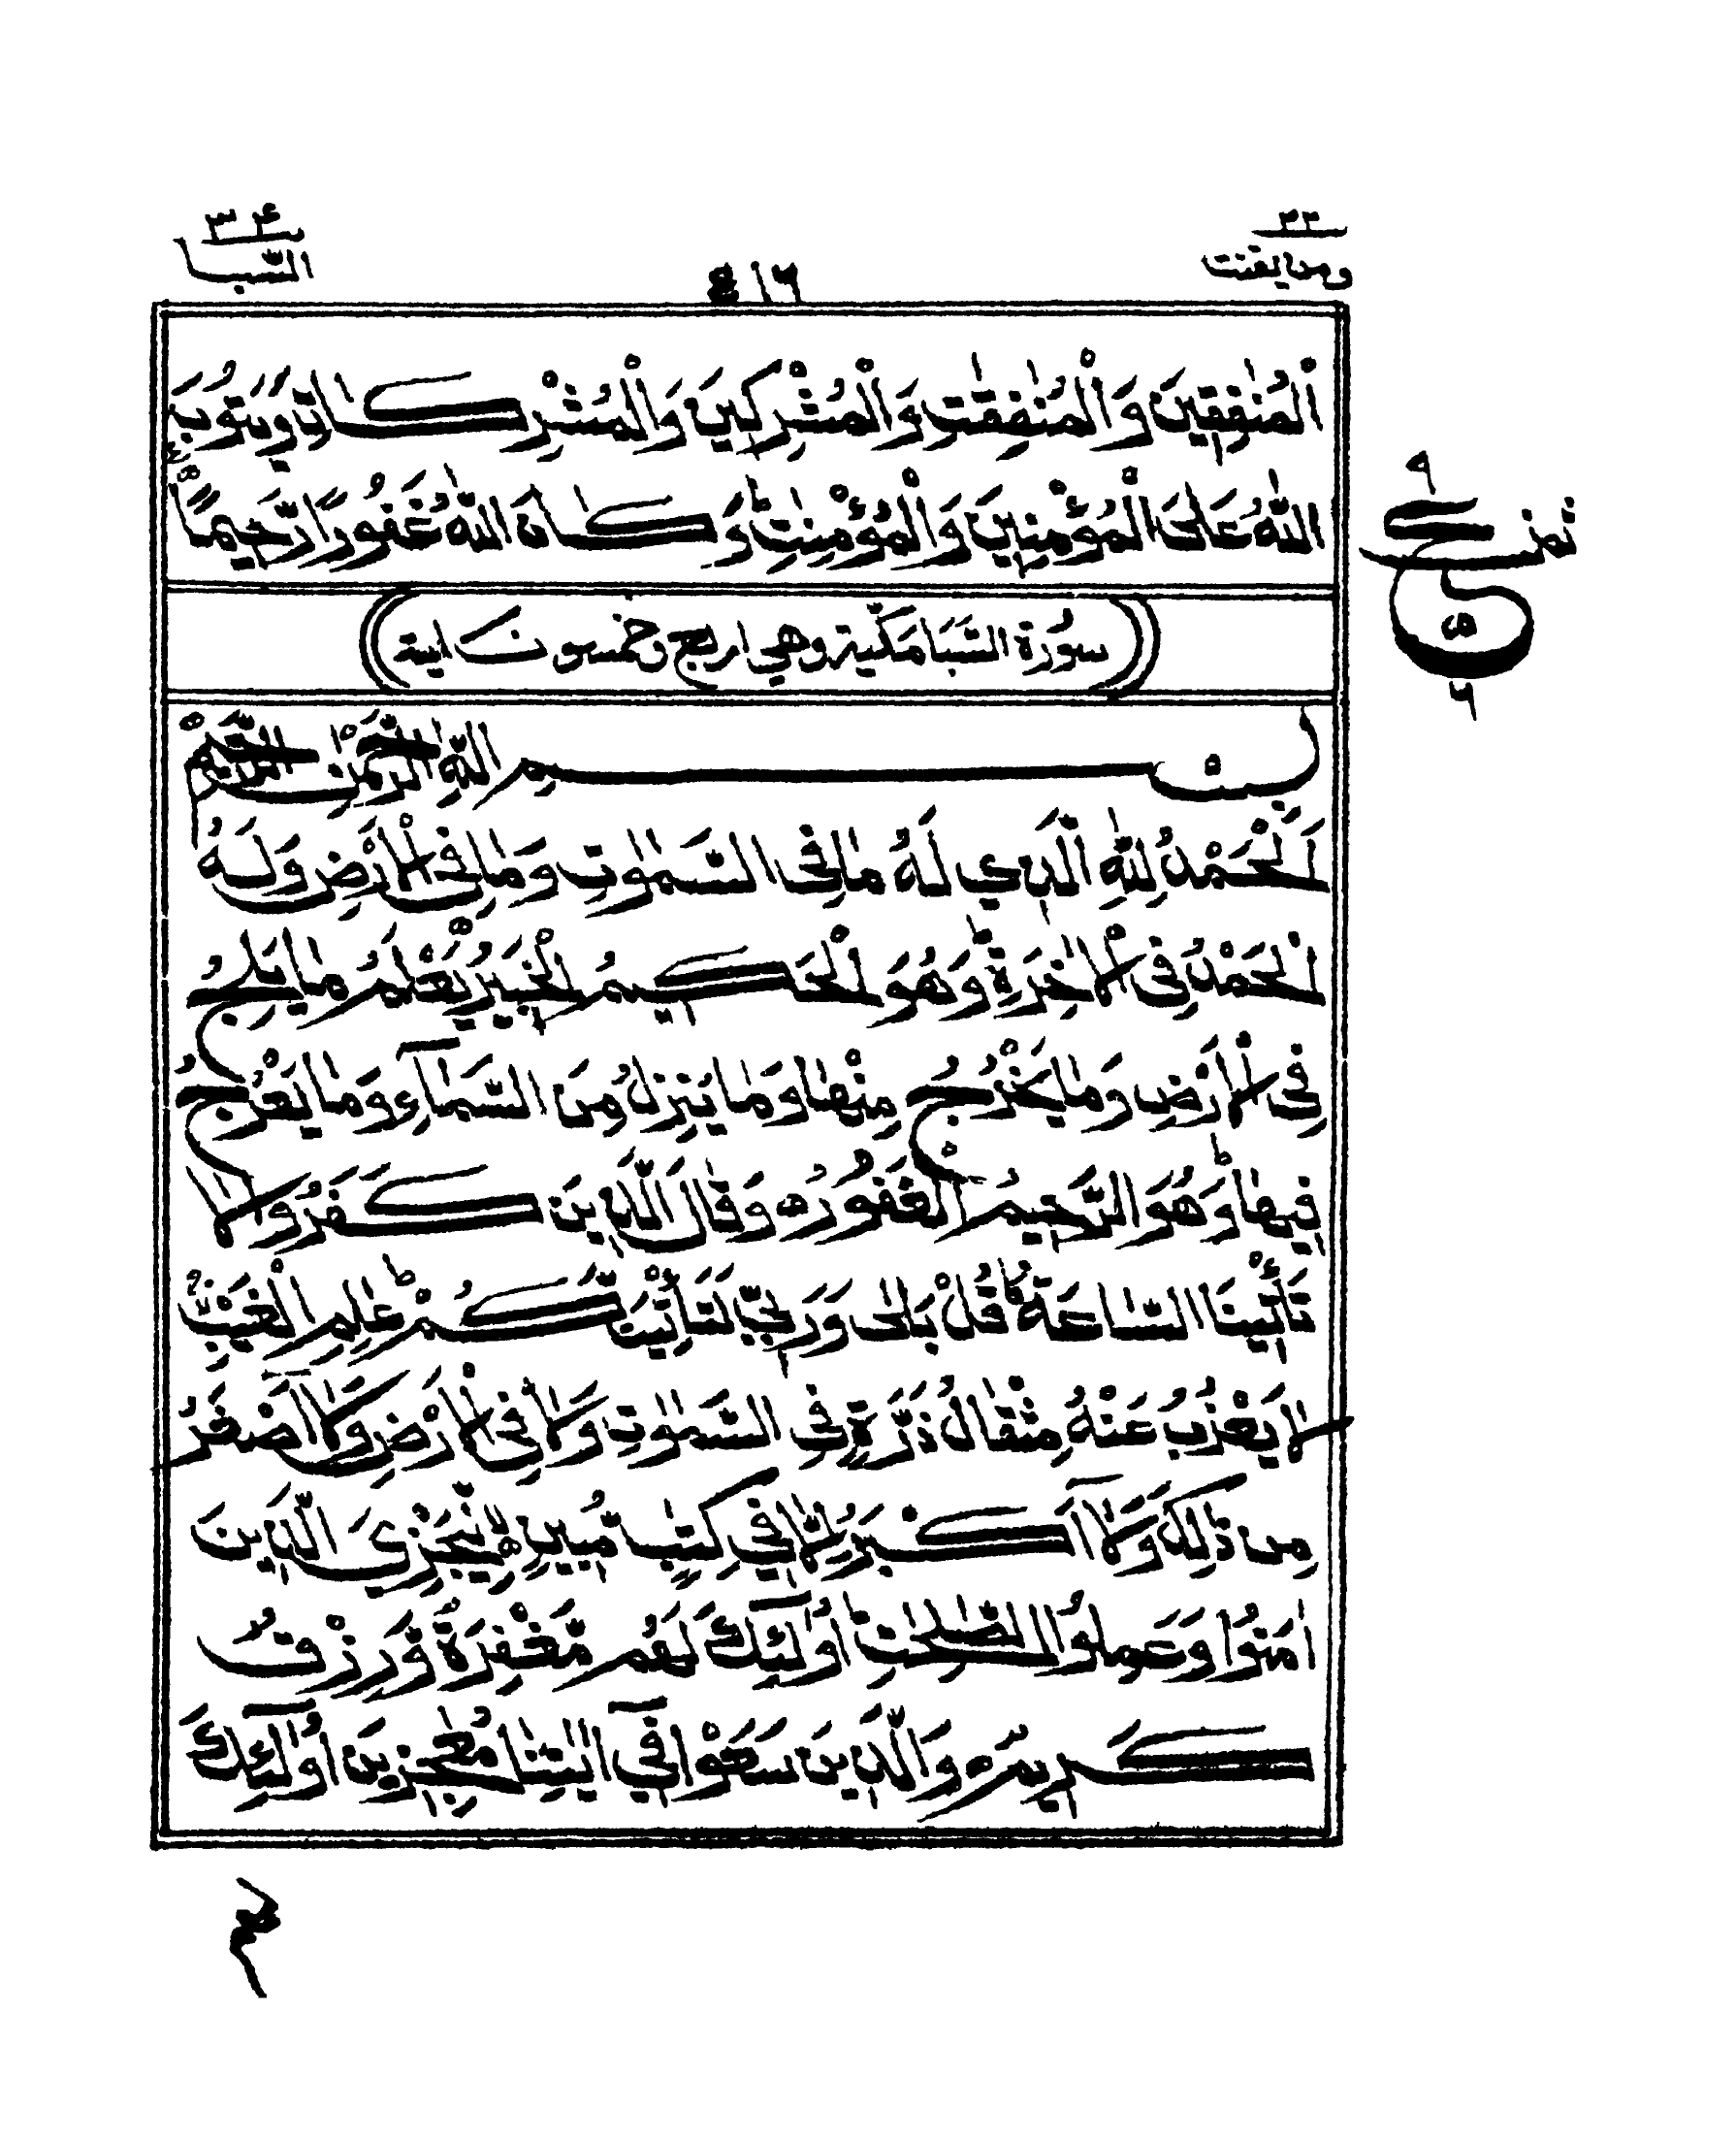 ومن يقنت ٢٢
٦١٤
السبا ٣٤
الْمُنٰفِقِيْنَ وَالْمُنٰفِقٰتِ وَالْمُشْرِكِيْنَ وَالْمُشْرِكٰتِ وَيَتُوْبَ
اللّٰهُ عَلَى الْمُؤْمِنِيْنَ وَالْمُؤْمِنٰتِؕ وَكَانَ اللّٰهُ غَفُوْرًا رَّحِيْمًا
سُوْرَة السَّبَا مَكّيّة وهي اربع وخمسون اية
بِسْمِ اللّٰهِ الرَّحْمٰنِ الرَّحِيْمِ
اَلْحَمْدُ لِلّٰهِ الَّذِي لَهُ مَا فِي السَّمٰوٰتِ وَمَا فِي الْاَرْضِ وَلَهُ
الْحَمْدُ فِي الْاٰخِرَةِؕ وَهُوَ الْحَكِيْمُ الْخَبِيْرُ يَعْلَمُ مَا يَلِجُ
فِي الْاَرْضِ وَمَا يَخْرُجُ مِنْهَا وَمَا يَنْزِلُ مِنَ السَّمَآءِ وَمَا يَعْرُجُ
فِيْهَاؕ وَهُوَ الرَّحِيْمُ الْغَفُوْرُ ه وَقَالَ الَّذِيْنَ كَفَرُوْا لَا
تَأْتِيْنَا السَّاعَةُؕ قُلْ بَلٰى وَرَبِّيْ لَتَأْتِيَنَّكُمْ عٰلِمِ الْغَيْبِۚ
لَا يَعْزُبُ عَنْهُ مِثْقَالُ ذَرَّةٍ فِي السَّمٰوٰتِ وَلَا فِي الْاَرْضِ وَلَآ اَصْغَرُ
مِنْ ذٰلِكَ وَلَآ اَكْبَرُ اِلَّا فِيْ كِتٰبٍ مُّبِيْنٍ ه لِّيَجْزِيَ الَّذِيْنَ
اٰمَنُوْا وَعَمِلُوا الصّٰلِحٰتِؕ اُولٰٓئِكَ لَهُمْ مَّغْفِرَةٌ وَّرِزْقٌ
كَرِيْمٌ ه وَالَّذِيْنَ سَعَوْا فِيْٓ اٰيٰتِنَا مُعٰجِزِيْنَ اُولٰٓئِكَ
٩
ع
٥
٦